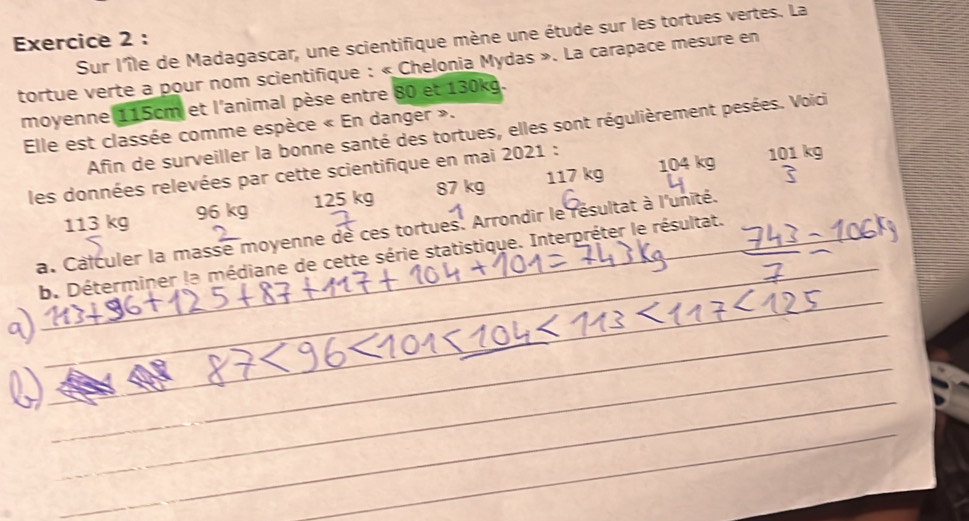 Exercice 2 :
Sur l'île de Madagascar, une scientifique mène une étude sur les tortues vertes. La
tortue verte a pour nom scientifique : « Chelonia Mydas ». La carapace mesure en
moyenne 115cm et l'animal pèse entre 80 et 130kg.
Elle est classée comme espèce « En danger ».
Afin de surveiller la bonne santé des tortues, elles sont régulièrement pesées. Voici
les données relevées par cette scientifique en mai 2021 :
113 kg 96 kg 125 kg 87 kg 117 kg 104 kg 101 kg
5 2 7 1 6 4 3
a. Calculer la masse moyenne de ces tortues. Arrondir le résultat à l'unité.
b. Déterminer la médiane de cette série statistique. Interpréter le résultat.
a) 113+96+125+87+117+104+101=743kg 743/7=106kg
b) 87<96<101<104<113<117<125